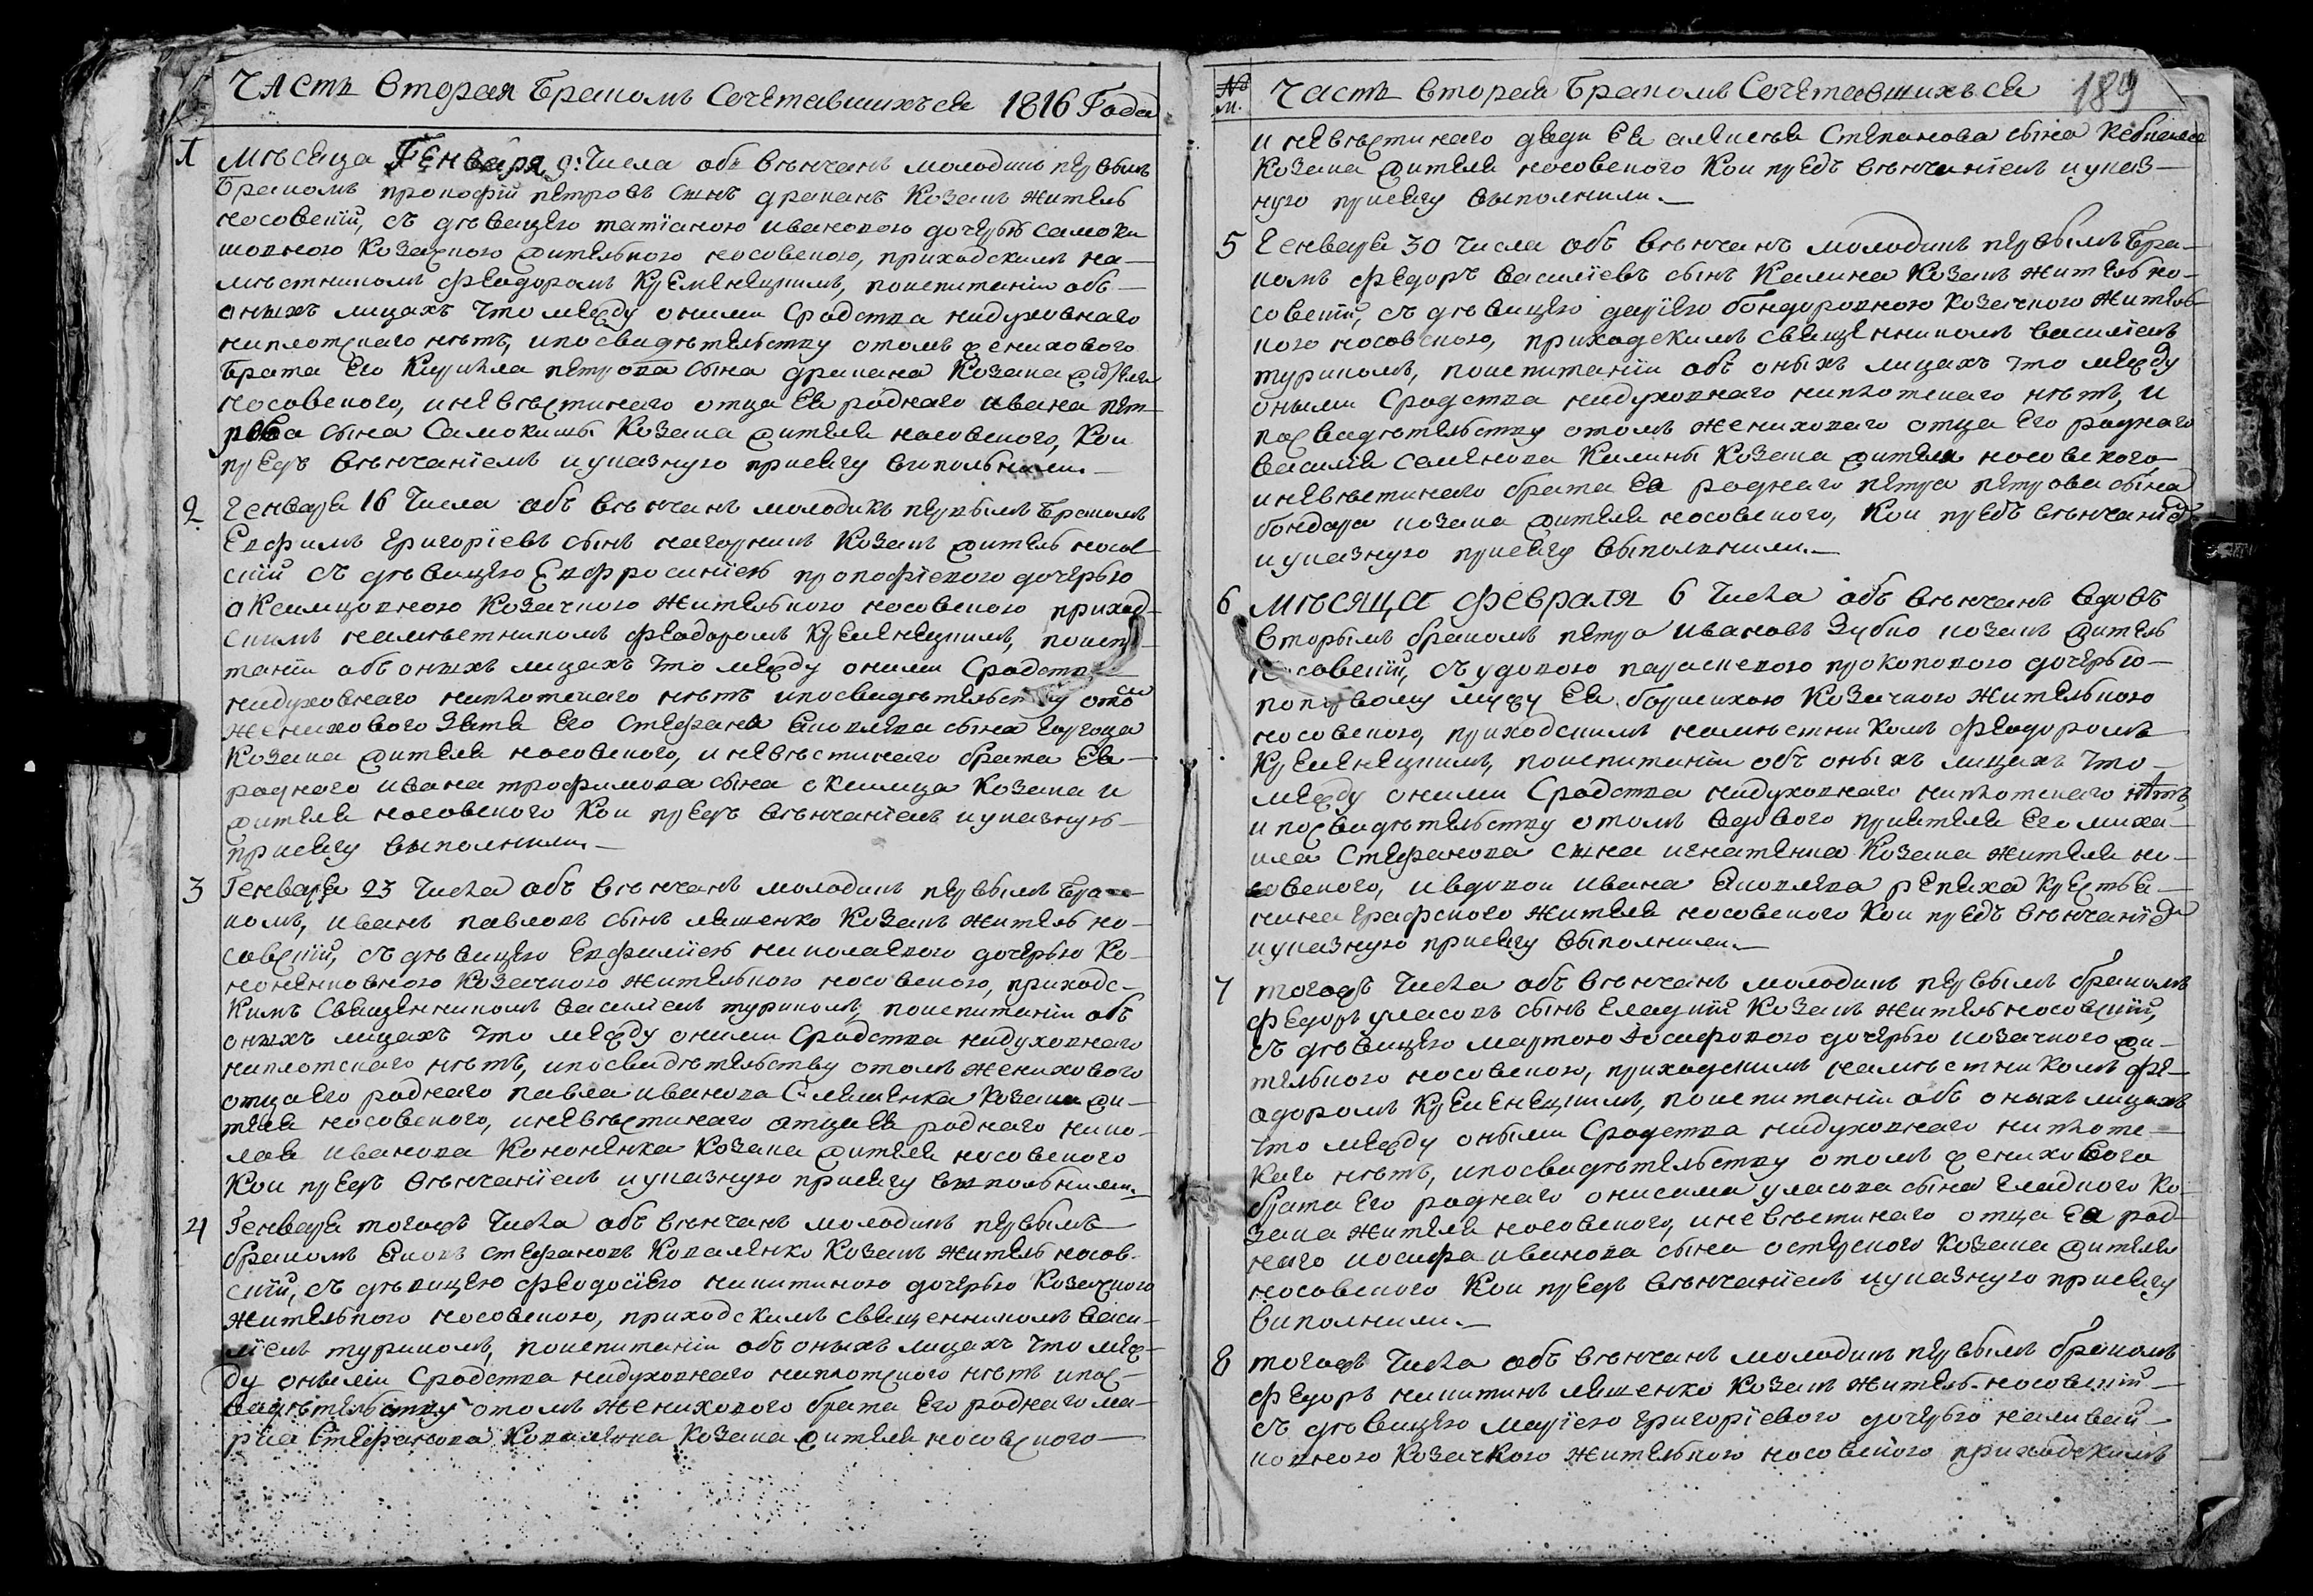 Часть вторая Бракомъ Сочетавшихъся 1816 Года
1 Мѣсяца Генваря 9: Числа обвѣнчанъ молодикъ первымъ
Бракомъ прокофій петровъ сынъ драпанъ Козакъ житель
носовскій, съ дѣвицею татіаною ивановою дочерью самоки
шовною Козачкою жителькою носовскою, приходскимъ на-
мѣстникомъ феодоромъ Кременецкимъ, поиспитаніи объ
оныхъ лицахъ что между оними сродства нидуховнаго
ниплотскаго нѣтъ, ипосвидѣтельству отомъ женихового
брата Его Кирилла петрова сына драпана Козака жителя
носовского, иневѣстинаго отца Ея роднаго ивана пет-
рова сына Самокиши Козака жителя носовского, Кои
предъ вѣнчаніемъ иуказную присягу виполънили.
2 Генваря 16 Числа обвѣнчанъ молодикъ первымъ Бракомъ
Евфимъ григоріевъ сынъ нагорний Козакъ житель носов-
скій съ дѣвицею Евфросиніею прокофіевою дочерью
оксимцовною Козачкою жителькою носовскою приход-
скимъ намѣстникомъ феодоромъ Кременецкимъ, поиспи-
таніи объ оныхъ лицахъ что между оними сродства
нидуховнаго ниплотскаго нѣтъ ипосвидѣтельству отом
женихового зятя Его Стефана яковлева сына
Козака жителя носовского, иневѣстинаго брата Ея
роднаго ивана трофимова сына оксимца Козака и
жителя носовского Кои предъ вѣнчаніемъ иуказную
присягу выполнили.
3 Генваря 23 Числа обвѣнчанъ молодикъ первымъ бра-
комъ, иванъ павловъ сынъ ляшенко Козакъ житель но-
совскій, съ дѣвицею Евфиміею николаевою дочерью Ко-
ноненковною Козачкою жителькою носовскою, приходс-
Кимъ Священникомъ василіемъ турикомъ, поиспитаніи объ
оныхъ лицахъ что между оними сродства нидуховнаго
ниплотскаго нѣтъ, ипосвидѣтельству отомъ женихового
отца Его роднаго павла иванова С: ляшенка Козака жи-
теля носовского, иневѣстинаго отца Ея роднаго нико-
лая иванова Кононенка Козака жителя носовского
Кои предъ вѣнчаніемъ иуказную присягу выполънили.
4 Генваря тогожъ Числа обвѣнчанъ молодикъ первымъ
бракомъ яковъ стефановъ Коваленко Козакъ житель носов-
скій, съ дѣвицею феодосіею никитиною дочерью Козачкою
жителькою носовскою, приходскимъ священникомъ васи-
ліемъ турикомъ, поиспитаніи объ оныхъ лицахъ что меж-
ду оными сродства нидуховнаго ниплотского нѣтъ ипос-
видѣтельству отомъ женихового брата Его роднаго ма-
рка Стефанова Коваленка Козака жителя носовского
№ м. Часть вторая Бракомъ Сочетавшихъся 189
и невѣстинаго дяди Ея алексѣя Степанова сына
Козака жителя носовского Кои предъ вѣнчаніемъ иуказ-
ную присягу выполнили.
5 Генваря 30 числа обвѣнчанъ молодикъ первымъ бра-
комъ федоръ василіевъ сынъ Калина Козакъ житель но-
совскій, съ дѣвицею даріею бондаровною Козачкою житель-
кою носовскою, приходскимъ священникомъ василіемъ
турикомъ, поиспитаніи объ оныхъ лицахъ что между
оными сродства нидуховнаго ниплотскаго нѣтъ, и
посвидѣтельству отомъ жениховаго отца Его роднаго
василія семенова Калины Козака жителя носовского
иневѣстинаго брата Ея роднаго петра петрова сына
бондаря козака жителя носовского, Кои предъ вѣнчаніем
иуказную присягу выполънили.
6 Мѣсяца февраля 6 Числа обвѣнчанъ вдовъ
вторымъ бракомъ петро ивановъ Зубко козакъ житель
носовскій, съ удовою параскевою прокоповою дочерью
попервому мужу Ея борисихою Козачкою жителькою
носовскою, приходскимъ намѣстникомъ феодоромъ
Кременецкимъ, поиспитаніи объ оныхъ лицахъ что
между оними сродства нидуховнаго ниплотскаго нѣтъ
ипосвидѣтельству отомъ вдового пріятеля Его миха-
ила Стефанова сына игнатенка Козака жителя но-
совского, ивдовои ивана яковлева репяха крестья-
нина графского жителя носовского Кои предъ вѣнчаніем
иуказную присягу выполнили.
7 тогожъ Числа обвѣнчанъ молодикъ первымъ бракомъ
федоръ уласовъ сынъ гладкій Козакъ житель носовскій,
съ дѣвицею мартою іосифовою дочерью козачкою жи-
телькою носовскою, приходскимъ намѣстникомъ фе-
одоромъ Кременецкимъ, поиспитаніи объ оныхъ лицахъ
что между оными сродства нидуховнаго ниплотс-
каго нѣтъ, ипосвидѣтельству отомъ женихового
брата Его роднаго онисима уласова сына гладкого Ко-
зака жителя носовского, иневѣстинаго отца Ея род-
наго иосифа иванова сына остерского Козака жителя
носовского Кои предъ вѣнчаніемъ иуказную присягу
виполнили.
8 тогожъ Числа обвѣнчанъ молодикъ первымъ бракомъ
федоръ никитинъ ляшенко Козакъ житель носовскій
съ дѣвицею маріею григоріевою дочерью наливай-
ковною Козачкою жителькою носовскою приходскимъ